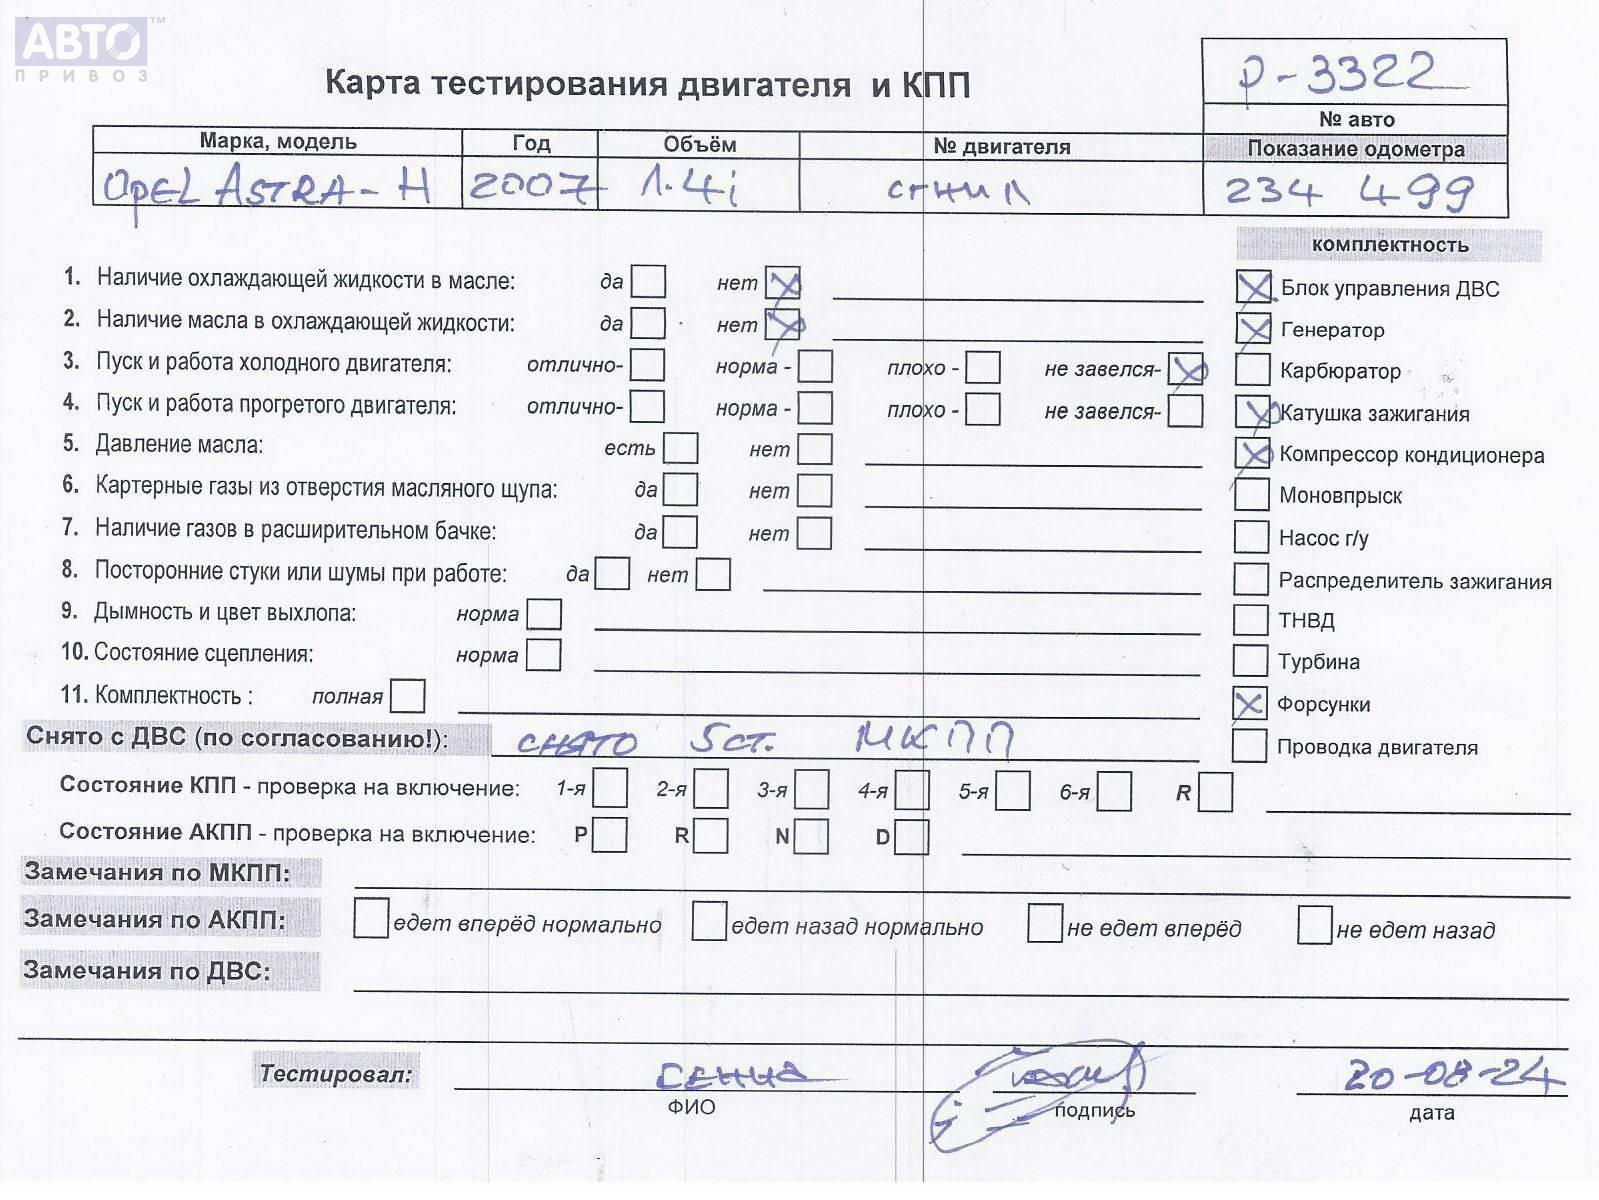 АВТО™
ПРИВОЗ
Карта тестирования двигателя и КПП
р-3322
№ авто
Марка, модель Год Объём № двигателя Показание одометра
Opel Astra-H 2007 1.4i сгнил 234 499
комплектность
1. Наличие охлаждающей жидкости в масле: да нет
Блок управления ДВС
2. Наличие масла в охлаждающей жидкости: да нет
Генератор
3. Пуск и работа холодного двигателя: отлично- норма - плохо - не завелся-
Карбюратор
4. Пуск и работа прогретого двигателя: отлично- норма - плохо - не завелся-
Катушка зажигания
5. Давление масла: есть нет
Компрессор кондиционера
6. Картерные газы из отверстия масляного щупа: да нет
Моновпрыск
7. Наличие газов в расширительном бачке: да нет
Насос г/у
8. Посторонние стуки или шумы при работе: да нет
Распределитель зажигания
9. Дымность и цвет выхлопа: норма
ТНВД
10. Состояние сцепления: норма
Турбина
11. Комплектность : полная
Форсунки
Снято с ДВС (по согласованию!): снято 5ст. МКПП
Проводка двигателя
Состояние КПП - проверка на включение: 1-я 2-я 3-я 4-я 5-я 6-я R
Состояние АКПП - проверка на включение: P R N D
Замечания по МКПП:
Замечания по АКПП: едет вперёд нормально едет назад нормально не едет вперёд не едет назад
Замечания по ДВС:
Тестировал: 20-08-24
ФИО подпись дата